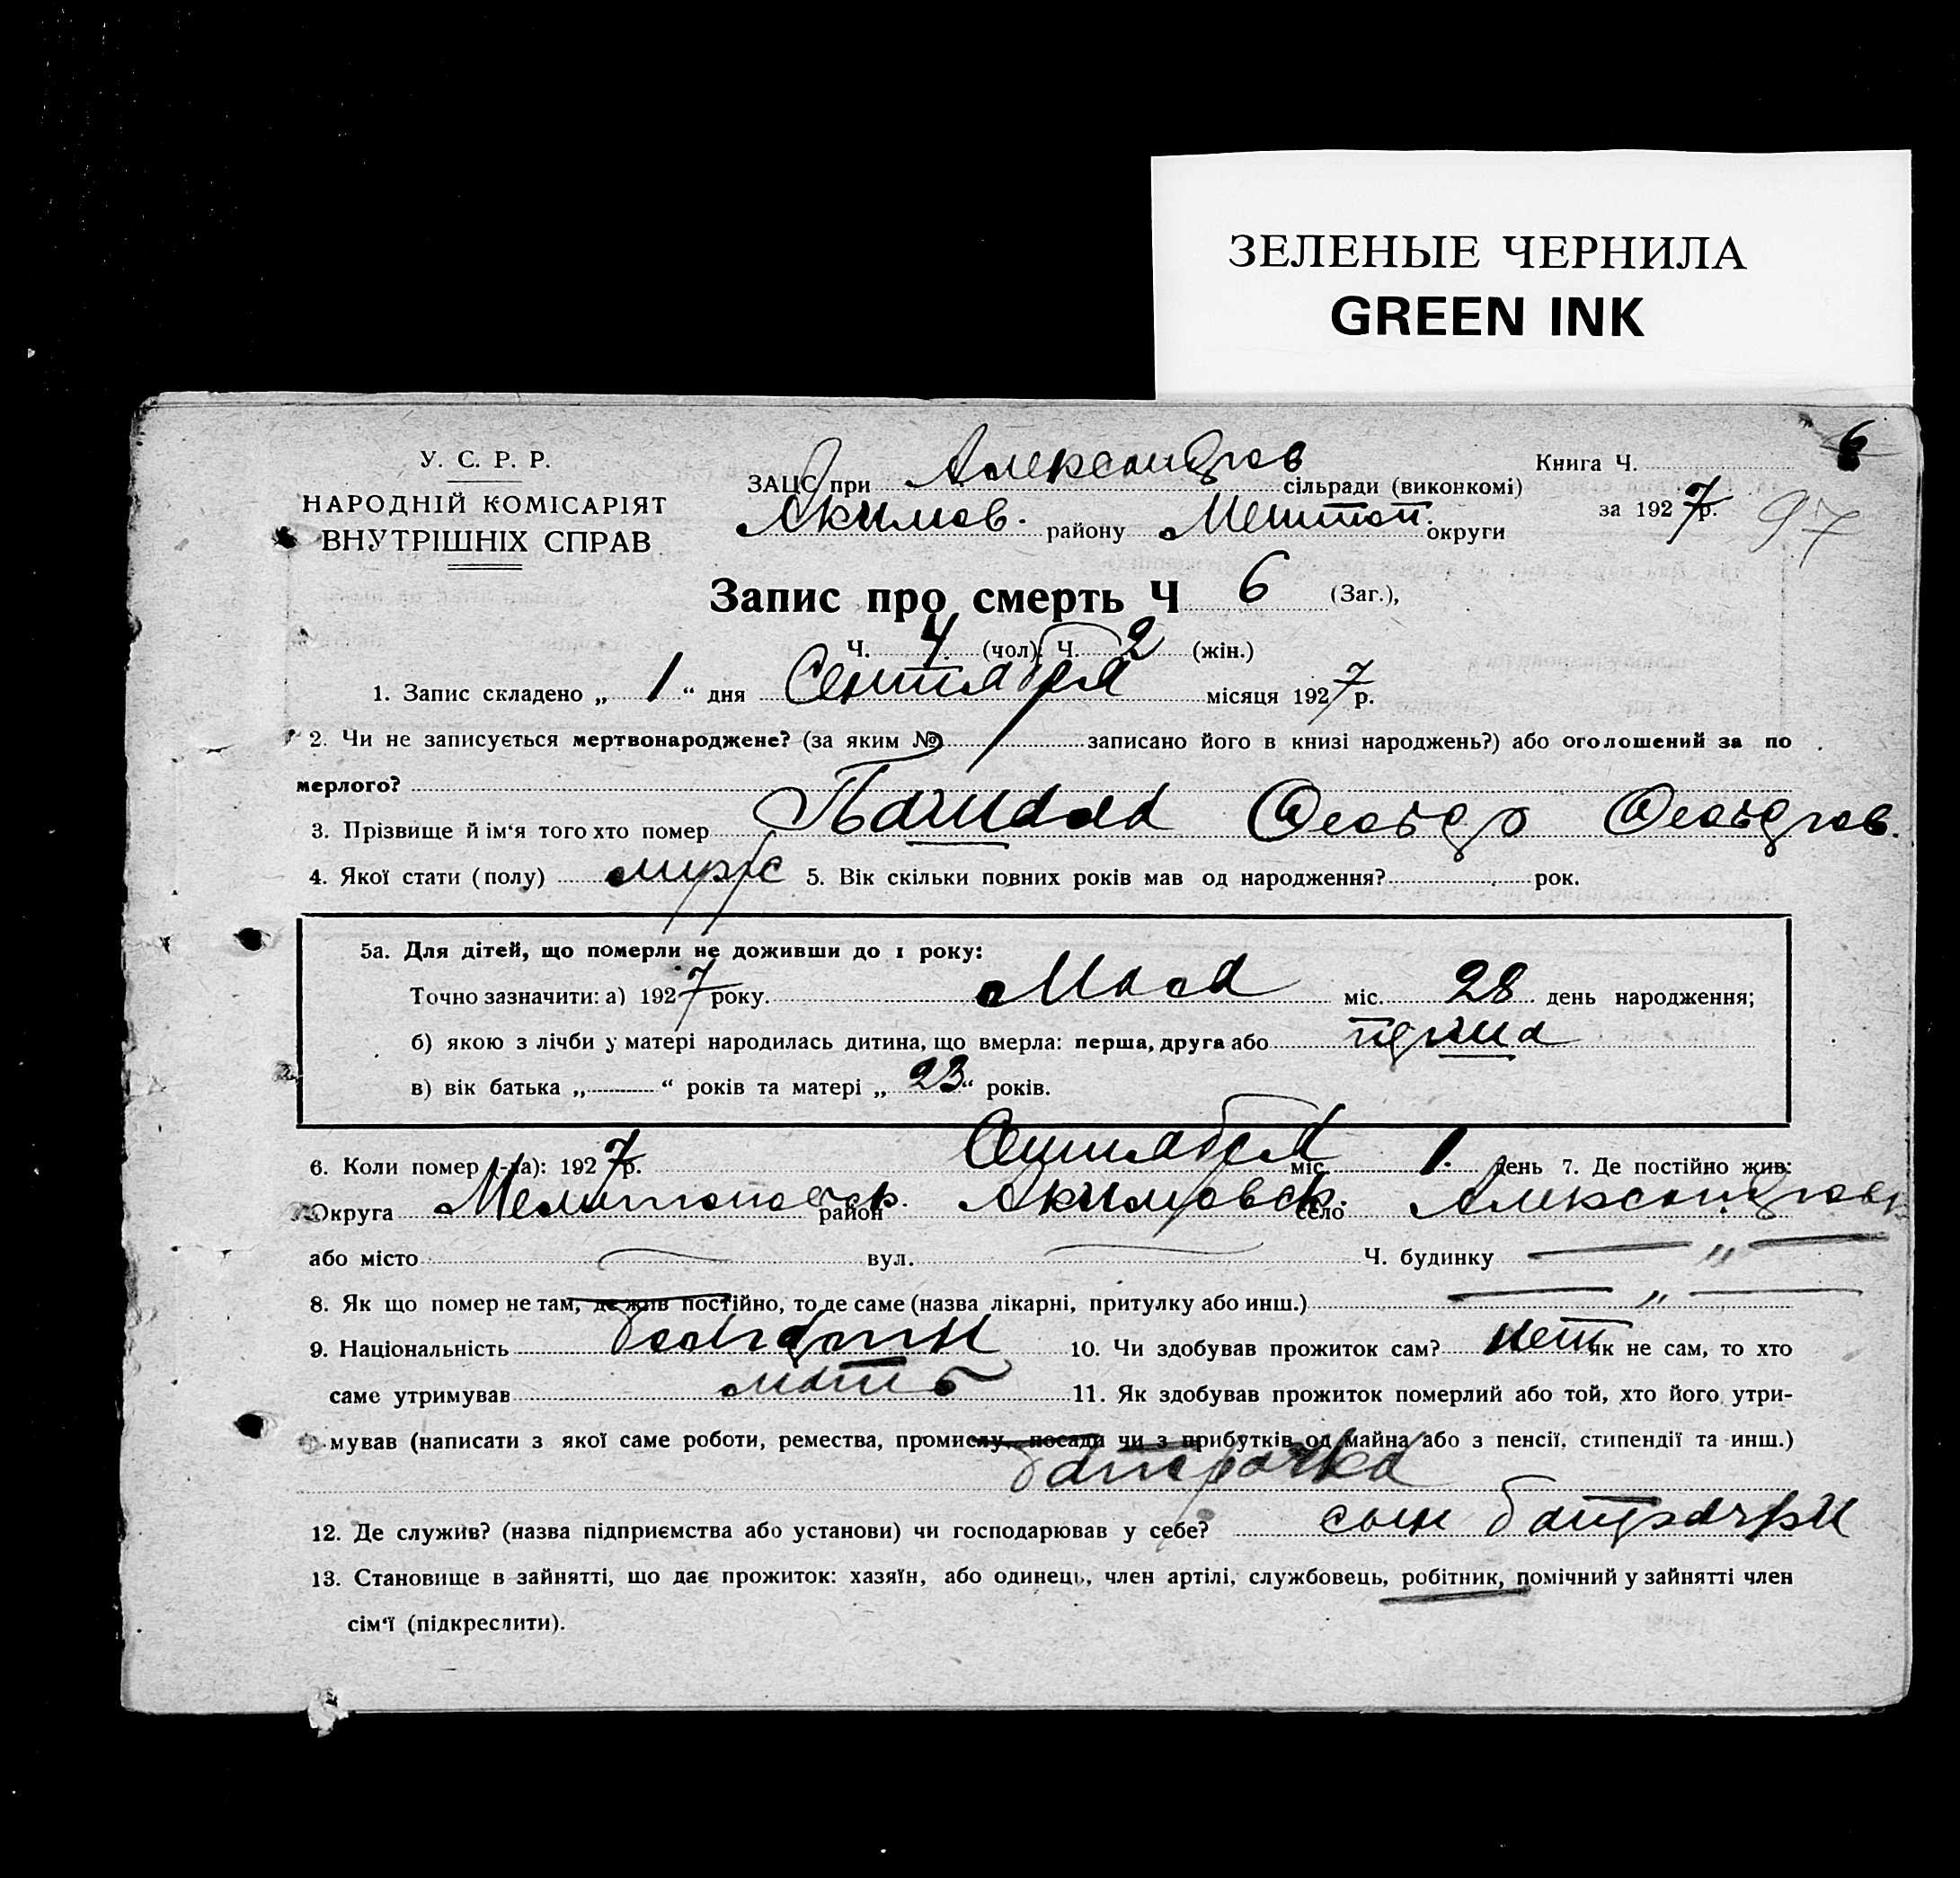 ЗЕЛЕНЫЕ ЧЕРНИЛА
GREEN INK
У. С. Р. Р.
НАРОДНІЙ КОМІСАРІЯТ
ВНУТРІШНІХ СПРАВ
ЗАЦС при Александров сільради (виконкомі)
Акимов. району Мелитоп. округи
Книга Ч. 6
за 1927 р. 97
Запис про смерть Ч 6 (Заг.),
Ч. 4 (чол). Ч. 2 (жін.)
1. Запис складено „ 1 “ дня Сентября місяця 1927 р.
2. Чи не записується мертвонароджене? (за яким № записано його в книзі народжень?) або оголошений за по
мерлого?
3. Прізвище й ім'я того хто помер
4. Якої стати (полу) мужс 5. Вік скільки повних років мав од народження? рок.
5а. Для дітей, що померли не доживши до 1 року:
Точно зазначити: а) 1927 року. Мая міс. 28 день народження;
б) якою з лічби у матері народилась дитина, що вмерла: перша, друга або перша
в) вік батька „ — “ років та матері „ 23 “ років.
6. Коли помер (-ла): 1927 р. Сентября міс. 1. день 7. Де постійно жив:
Округа Мелитопольск. район Акимовск. село Александровк
або місто — вул. — Ч. будинку — „ —
8. Як що помер не там, де жив постійно, то де саме (назва лікарні, притулку або инш.) — „ —
9. Національність 10. Чи здобував прожиток сам? нет як не сам, то хто
саме утримував мать 11. Як здобував прожиток померлий або той, хто його утри-
мував (написати з якої саме роботи, ремества, промислу, посади чи з прибутків од майна або з пенсії, стипендії та инш.)
батрачка
12. Де служив? (назва підприємства або установи) чи господарював у себе? сын батрачки
13. Становище в зайнятті, що дає прожиток: хазяїн, або одинець, член артілі, службовець, робітник, помічний у зайнятті член
сім'ї (підкреслити).